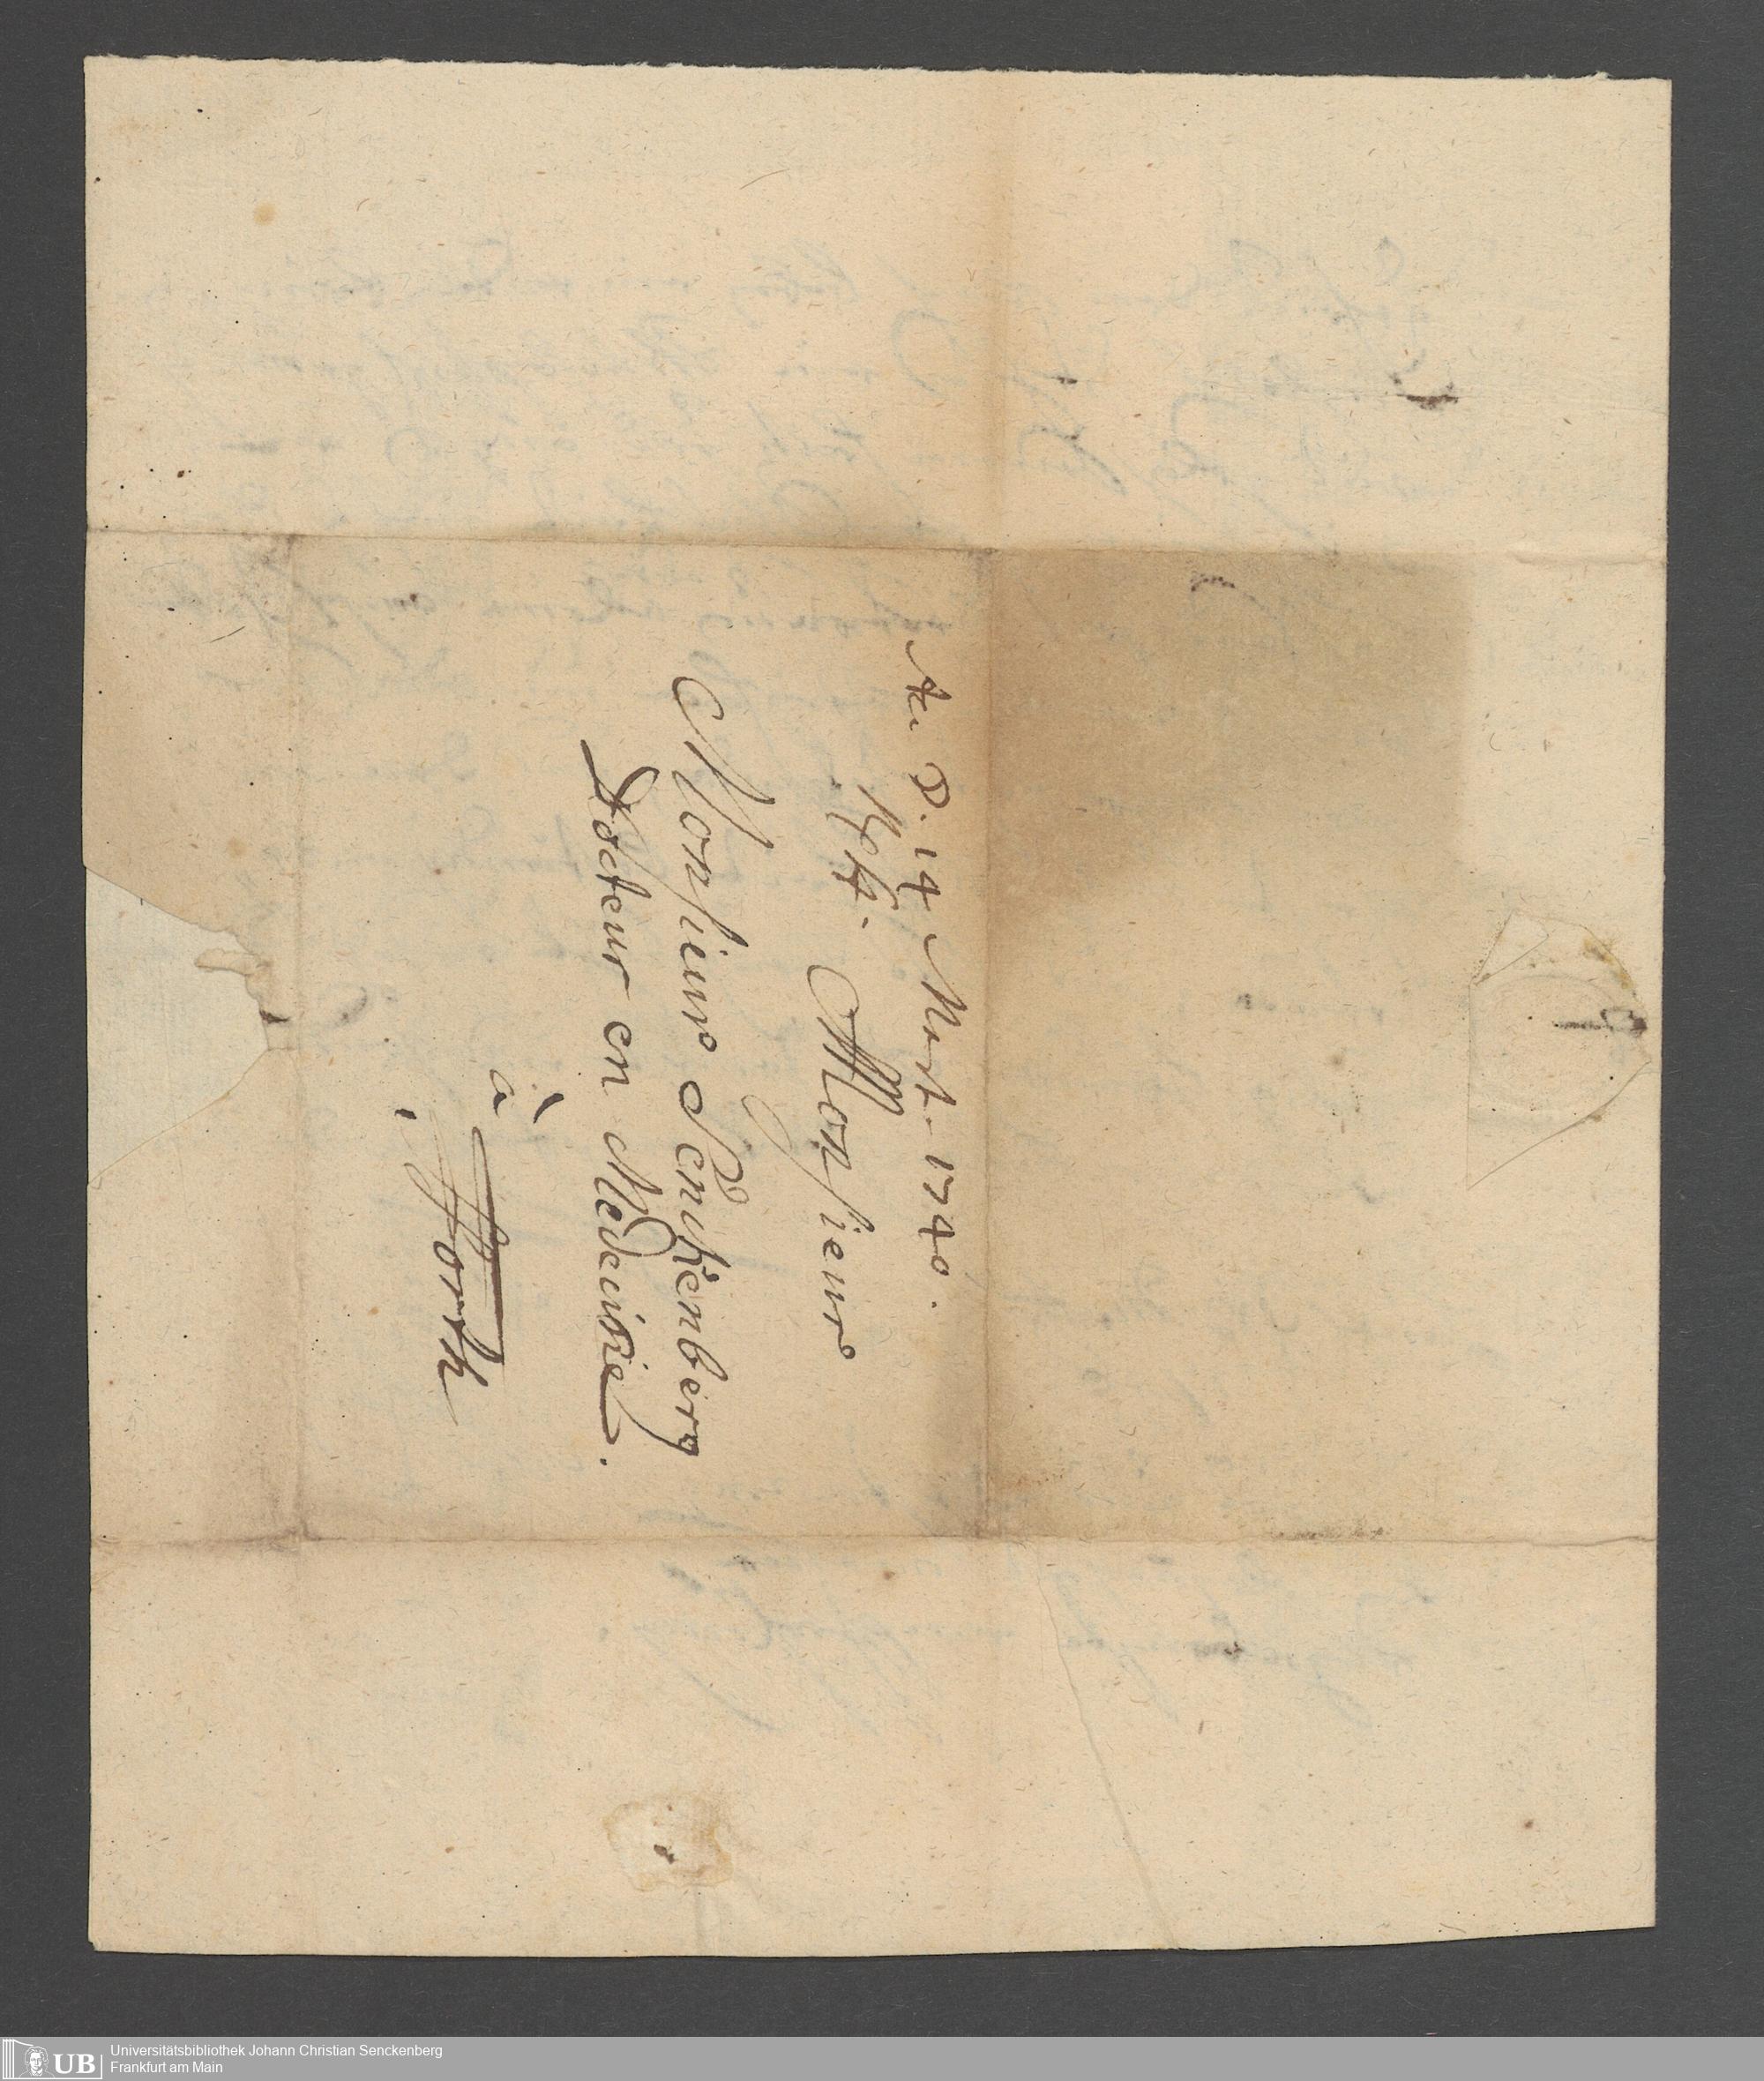 Acc. D. 14 Mart. 1740.
Monsieur
Monsieur Senckenberg
Docteur en Medecine.
à
Fforth
UB
Universitätsbibliothek Johann Christian Senckenberg
Frankfurt am Main